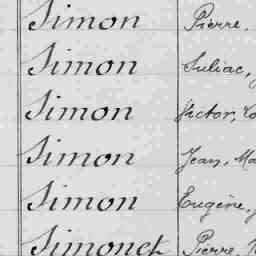 Simon Pierre,
Simon Suliac,
Simon Victor,
Simon Jean, Ma
Simon Eugène,
Simonet Pierre,